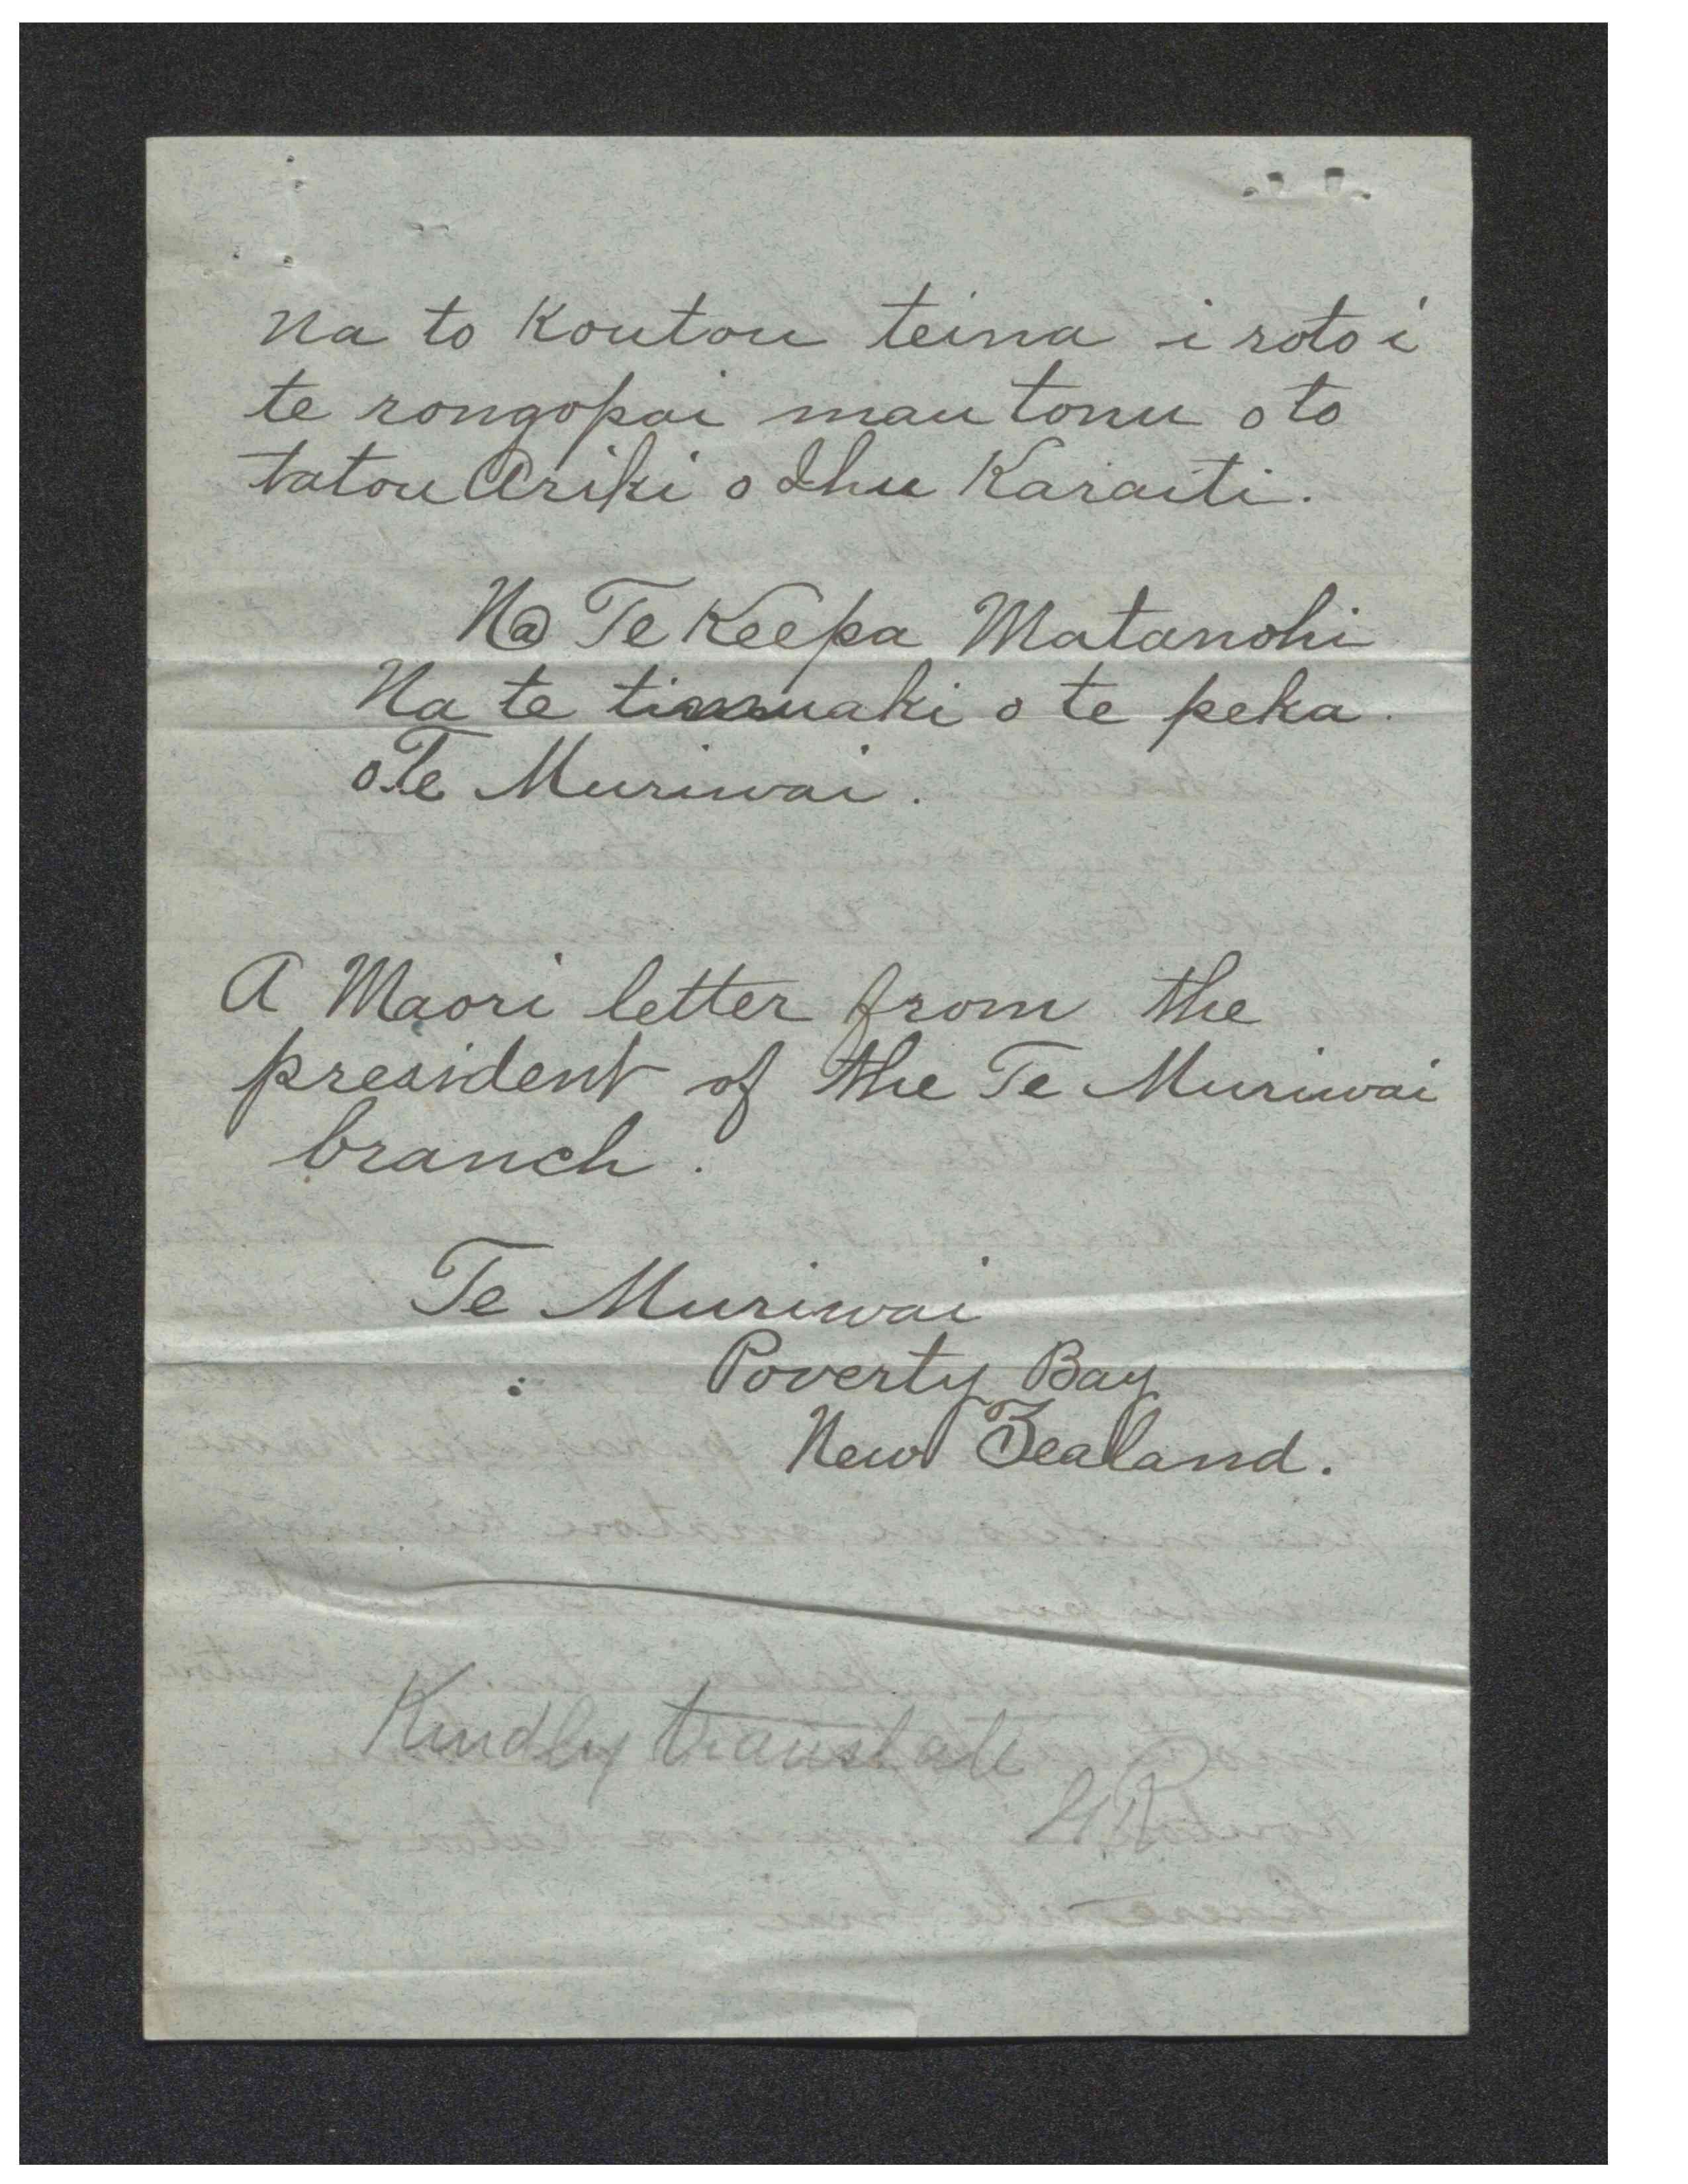 Na to Koutou teina i roto i
te rongopai mau tonu o to
tatou Ariki o Ihu Karaiti.
Na Te Keepa Matanohi
Na te timuaki o te peka.
o Te Muriwai.
A Maori letter from the
president of the Te Muriwai
branch.
Te Muriwai
Poverty Bay
New Zealand.
Kindly translate